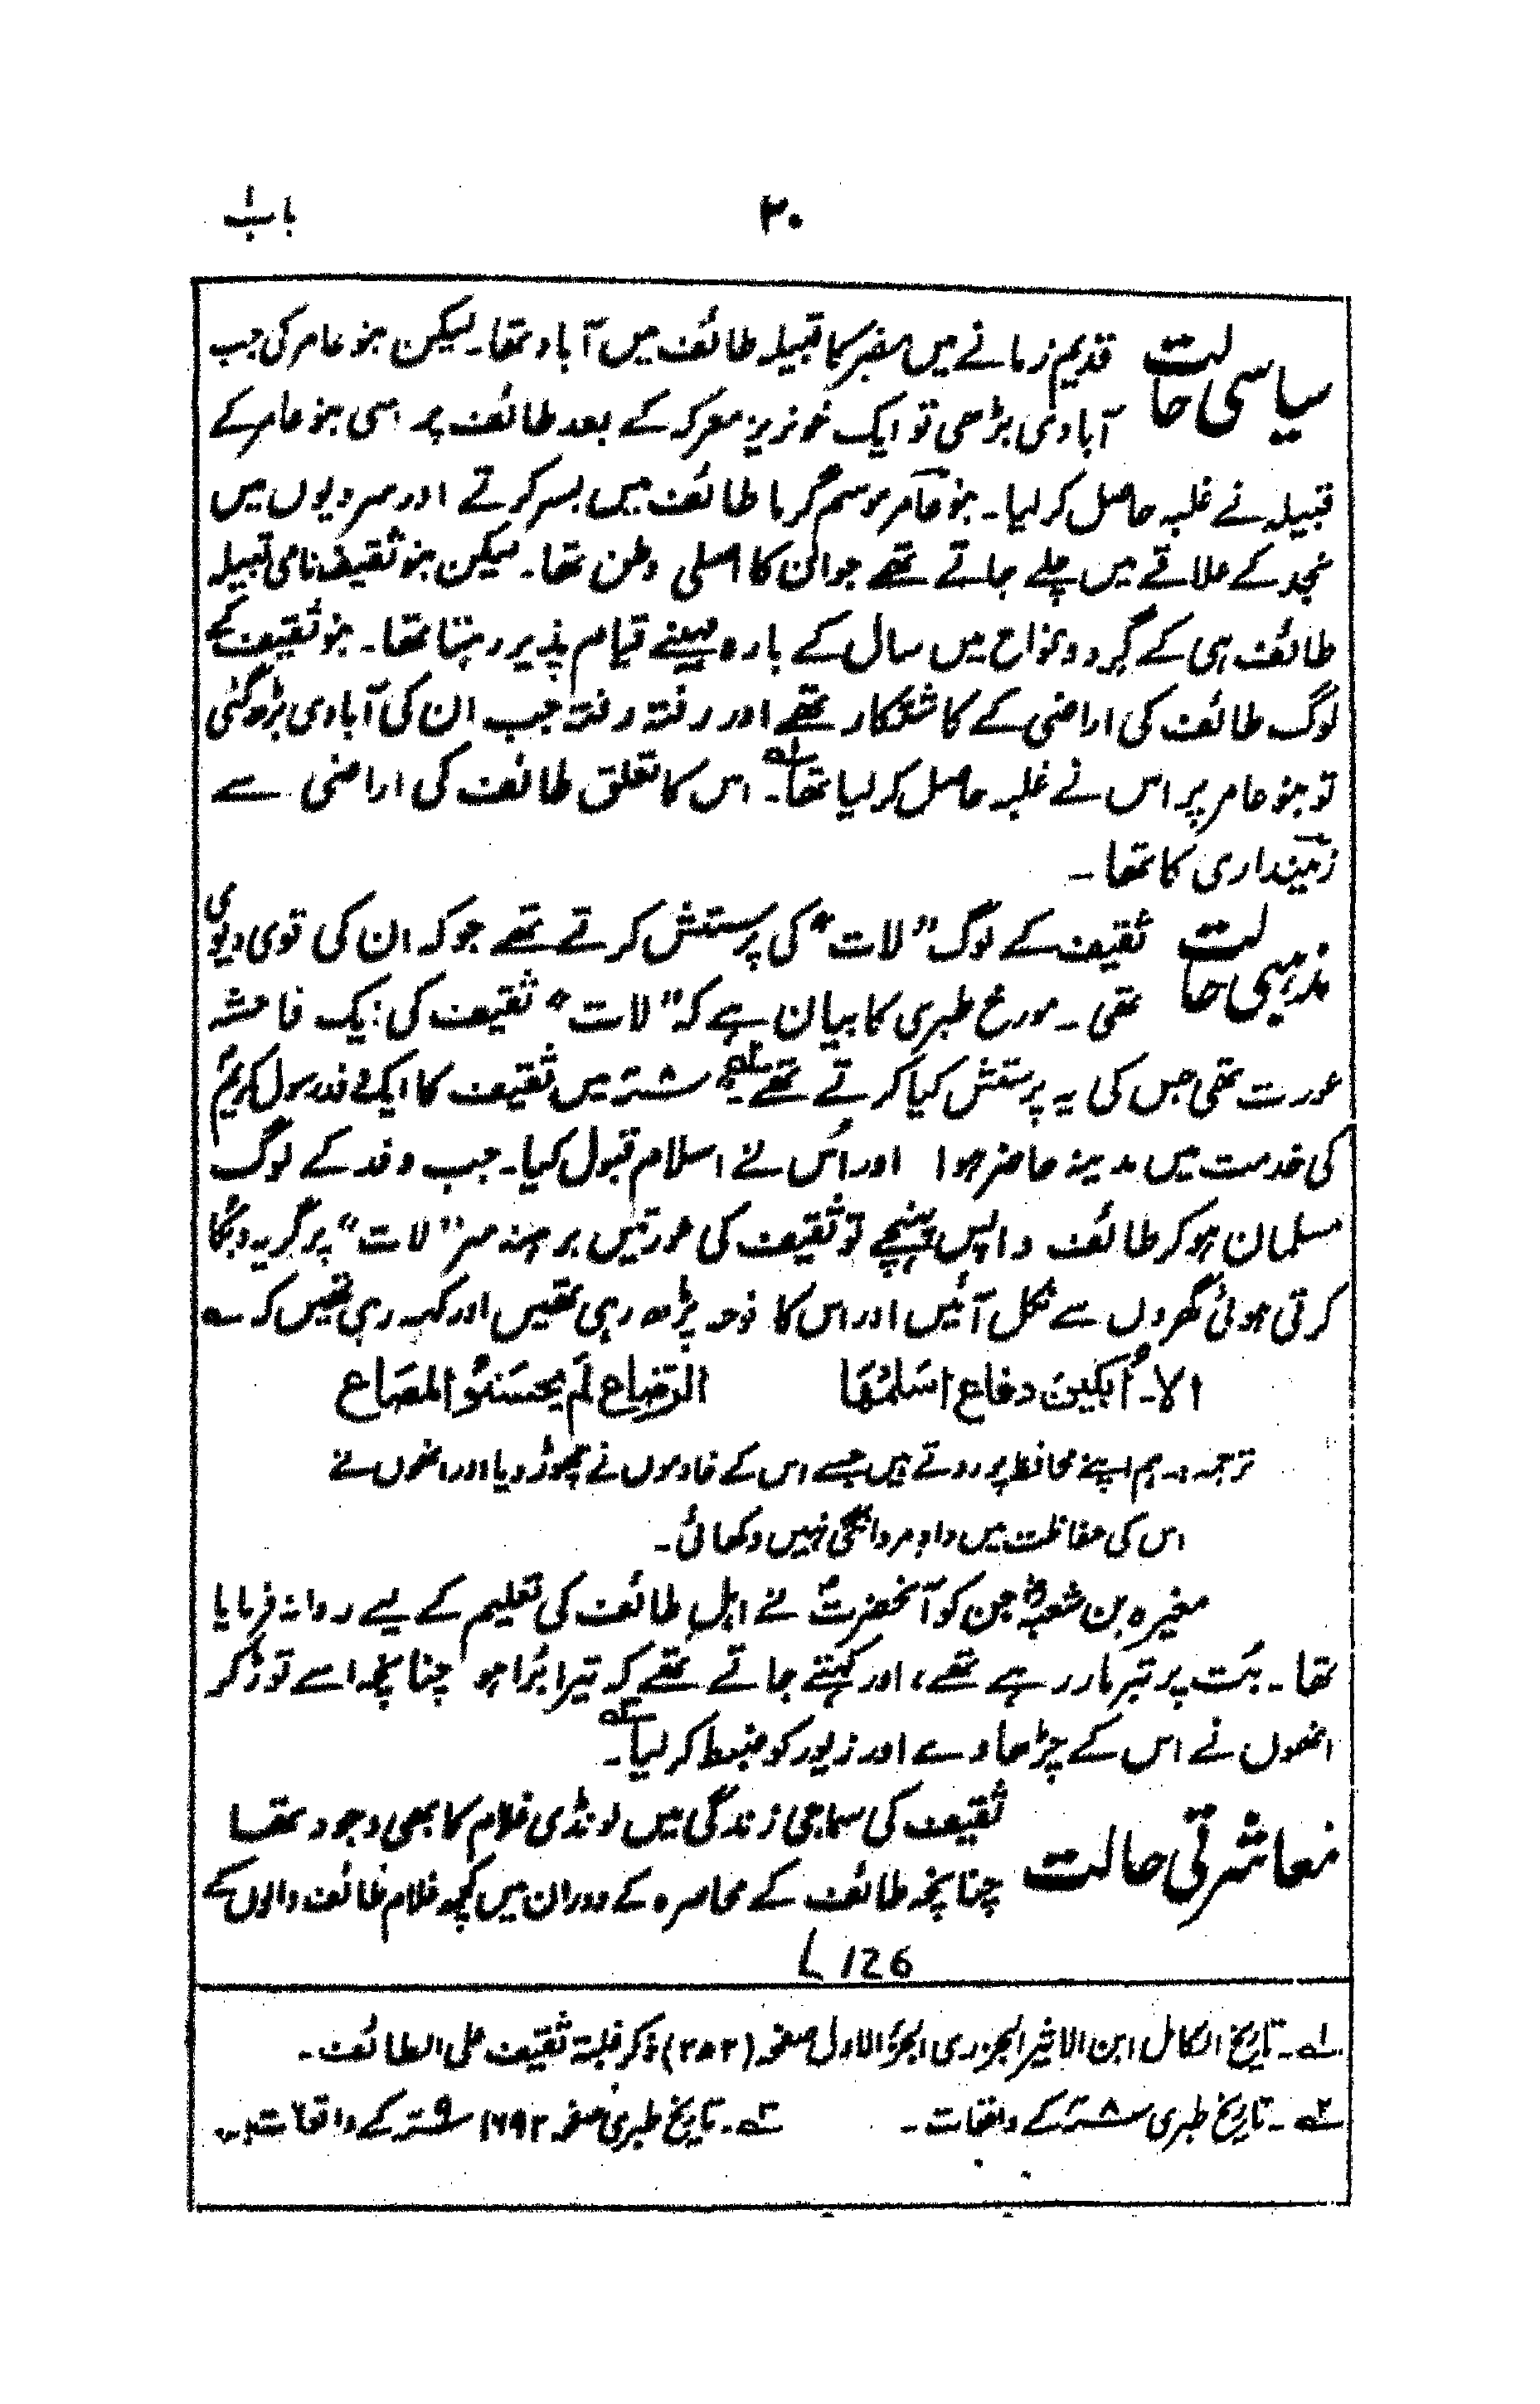 باب ۱
۲۰
سیاسی حالت قدیم زمانے میں مضر کا قبیلہ طائف میں آباد تھا۔ لیکن بنو عامر کی جب
آبادی بڑھی تو ایک خونریز معرکہ کے بعد طائف پر اسی بنو عامر کے
قبیلہ نے غلبہ حاصل کر لیا۔ بنو عامر موسم گرما طائف میں بسر کرتے اور سردیوں میں
نجد کے علاقے میں چلے جاتے تھے جو ان کا اصلی وطن تھا۔ لیکن بنو ثقیف نامی قبیلہ
طائف ہی کے گرد و نواح میں سال کے بارہ مہینے قیام پذیر رہتا تھا۔ بنو ثقیف کے
لوگ طائف کی اراضی کے کاشتکار تھے اور رفتہ رفتہ جب ان کی آبادی بڑھ گئی
تو بنو عامر پر اس نے غلبہ حاصل کر لیا تھا۔ ۱ھ اس کا تعلق طائف کی اراضی سے
زمینداری کا تھا۔
مذہبی حالت ثقیف کے لوگ "لات" کی پرستش کرتے تھے جو کہ ان کی قومی دیوی
تھی۔ مورخ طبری کا بیان ہے کہ "لات" ثقیف کی ایک فاحشہ
عورت تھی جس کی یہ پرستش کیا کرتے تھے۔ ۲ھ میں ثقیف کا ایک وفد رسول کریمؐ
کی خدمت میں مدینہ حاضر ہوا اور اُس نے اسلام قبول کیا۔ جب وفد کے لوگ
مسلمان ہو کر طائف واپس پہنچے تو ثقیف کی عورتیں برہنہ سر "لات" پر گریہ و بکا
کرتی ہوئی گھروں سے نکل آئیں اور اس کا نوحہ پڑھ رہی تھیں اور کہہ رہی تھیں کہ ؎
الا۔ اُبکین دفاع اسلمُھَا الرّضاع لَم یحسَنوُ المصَاع
ترجمہ:۔ ہم اپنے محافظ پر روتے ہیں جسے اس کے خادموں نے چھوڑ دیا اور انھوں نے
اس کی حفاظت میں دادِ مردانگی نہیں دکھائی۔
مغیرہ بن شعبہؓ جن کو آنحضرتؐ نے اہلِ طائف کی تعلیم کے لیے روانہ فرمایا
تھا۔ بُت پر تبر مار رہے تھے، اور کہتے جاتے تھے کہ تیرا بُرا ہو چنانچہ اسے توڑ کر
انھوں نے اس کے چڑھاوے اور زیور کو ضبط کر لیا۔ ۳ھ
معاشرتی حالت ثقیف کی سماجی زندگی میں لونڈی غلام کا بھی وجود تھا
چنانچہ طائف کے محاصرہ کے دوران میں کچھ غلام طائف والوں کے
L 126
۱ھ۔ تاریخ الکامل ابن الاثیر الجزری الجزء الاول صفحہ (۲۵۲) ذکر غلبۃ ثقیف علی الطائف۔
۲ھ۔ تاریخ طبری ۸ سنہ کے واقعات۔ ۳ھ۔ تاریخ طبری صفحہ ۱۶۹۲ ۹ سنہ کے واقعات۔